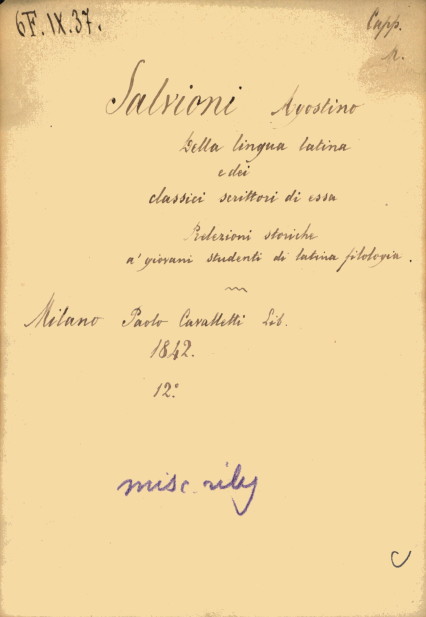 6F.IX.37.
Capp.
Salvioni Agostino
Della lingua latina
e dei
classici scrittori di essa
Prelezioni storiche
a' giovani studenti di latina filologia.
Milano Paolo Cavalletti Lib.
1842.
12.°
misc. rileg